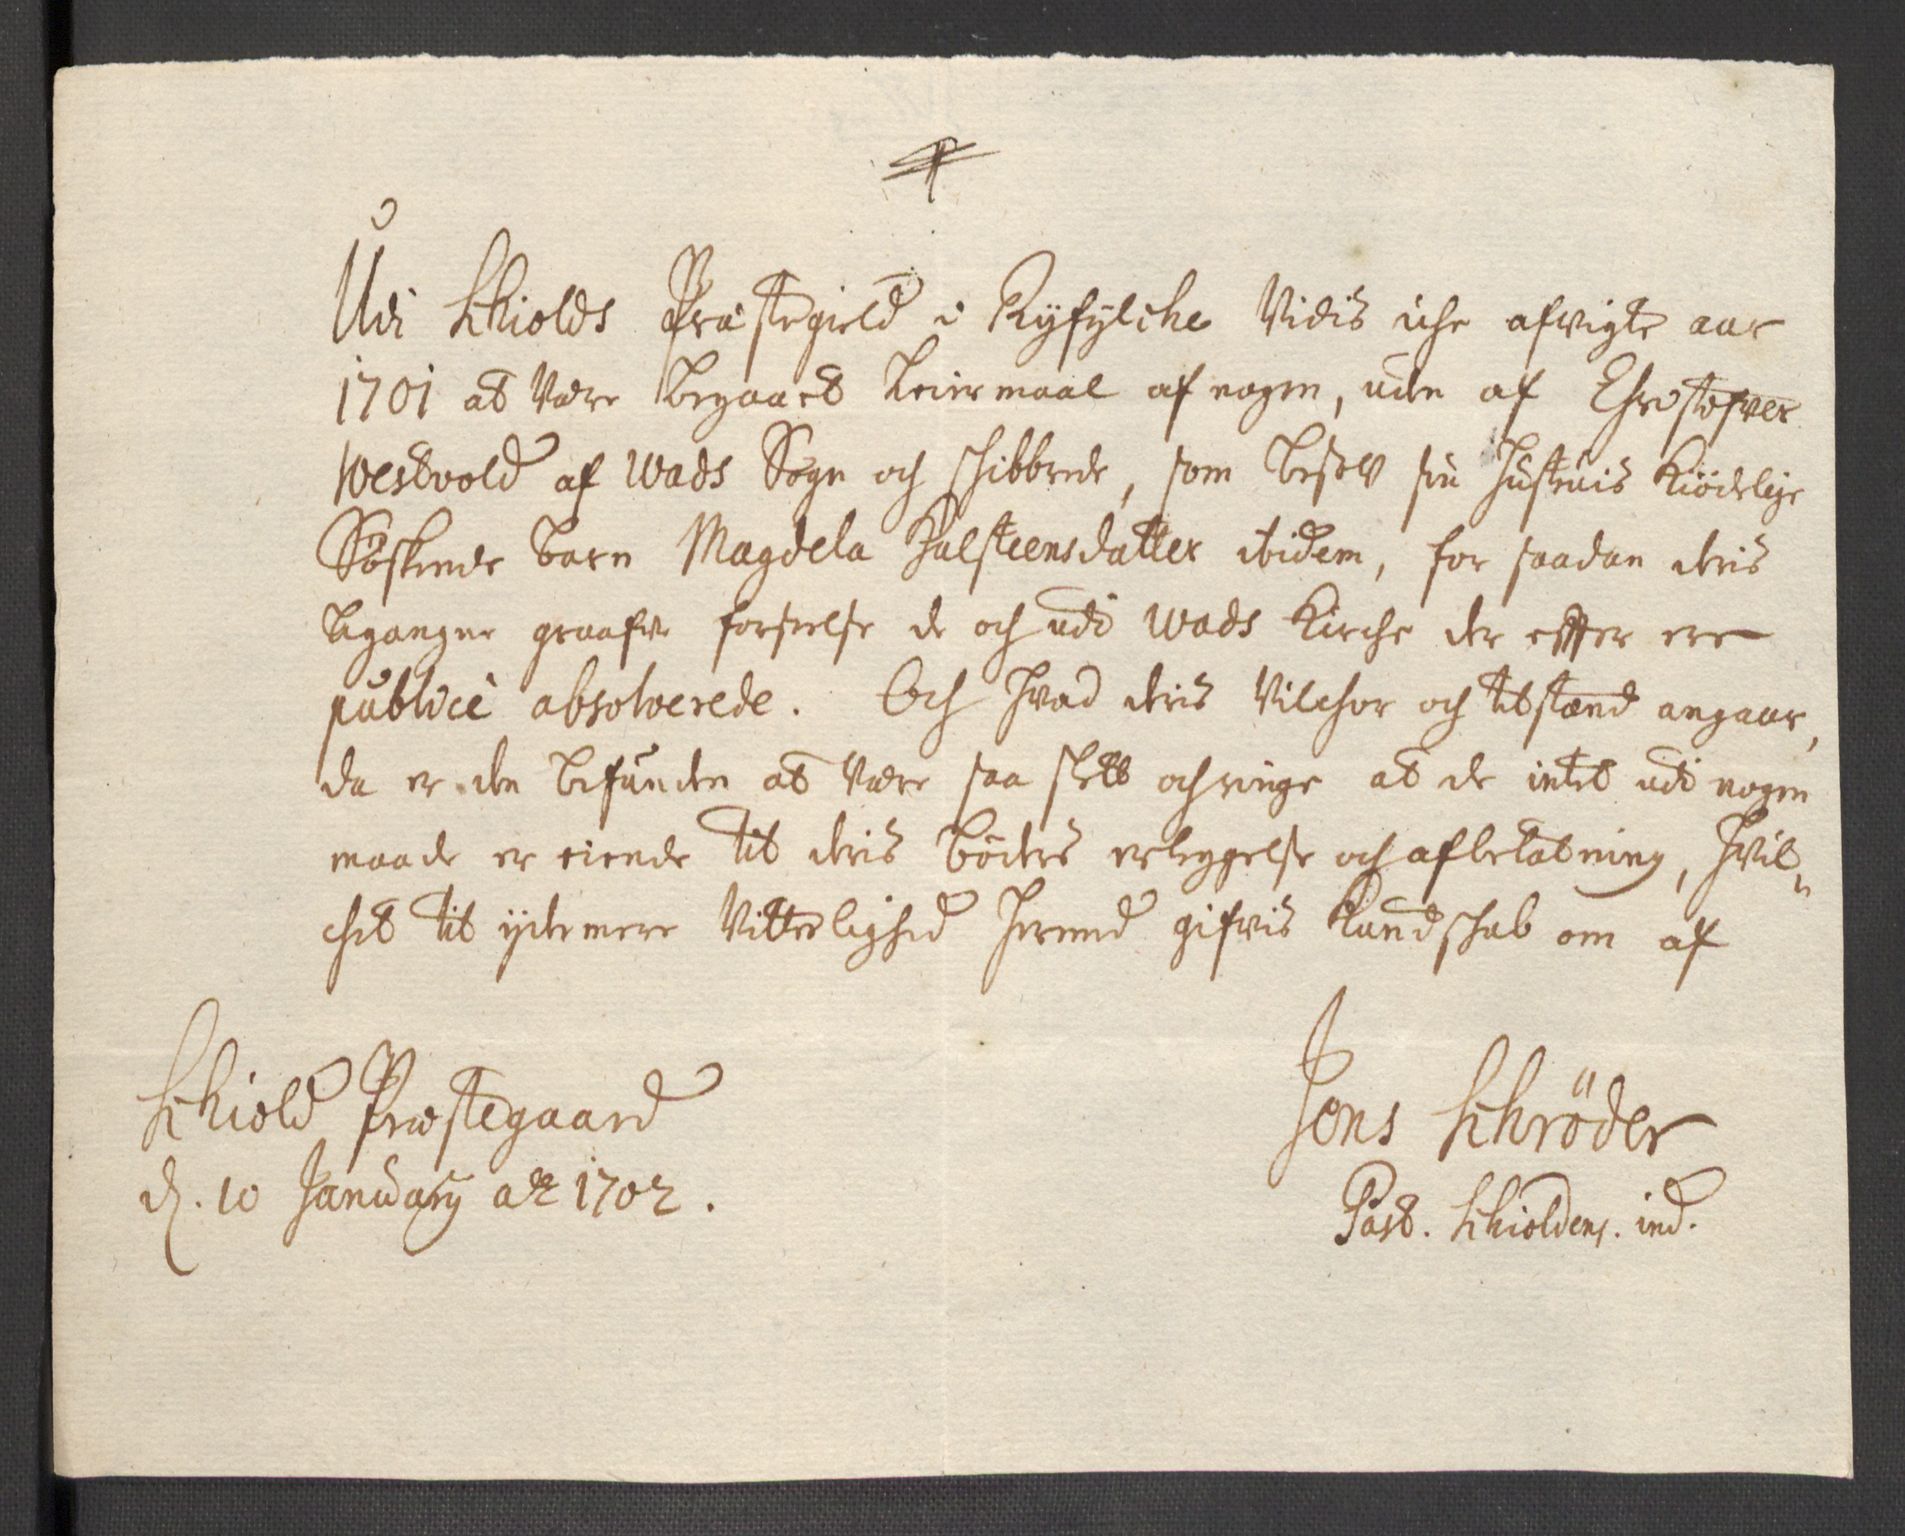 Udi Schiolds Præstegield i Ryfylche Vidis iche afvigte aar
1701 at Være begaaet Leiermaal af nogen, uden af Christofver
Westvold af Wads Sogn och schibbrede, som besov sin Hustruis Kiödelige
Söskende barn Magdela Halsteensdatter ibidem, for saadan deris
begangne graafve forseelse de och udi Wads Kirche der effter ere
publicè absolverede. Och hvad deris Vilchor och tilstand angaar,
da er den befunden at Være saa slett och ringe at de intet udi nogen
maade er eiende til deris böders erleggelse och afbetalning, hvil„
chet til ydermere Vitterlighed hermed gifvis Kundschab om af
Schiold Præstegaard
d. 10 January ao 1702.
Jens Schröder
Past. Schioldens. ind.